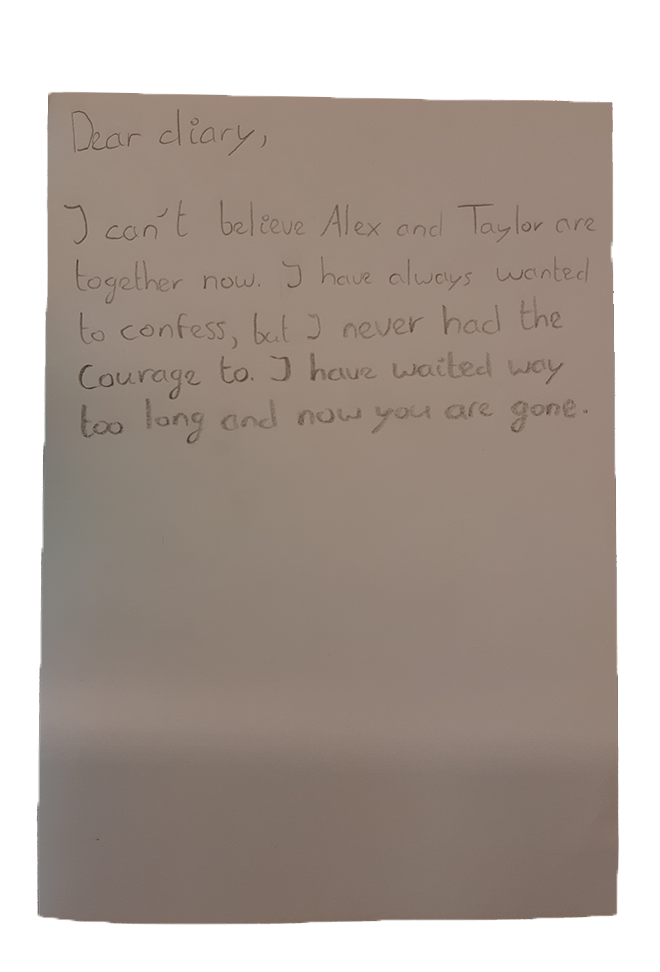 Dear diary,
I can't believe Alex and Taylor are
together now. I have always wanted
to confess, but I never had the
courage to. I have waited way
too long and now you are gone.